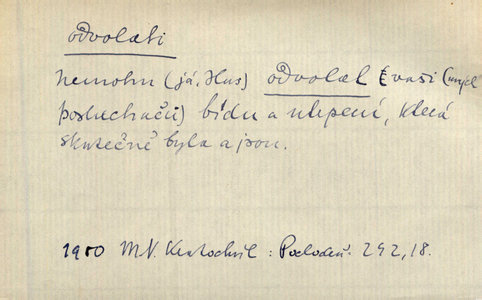 odvolati
nemohu (já, Hus) odvolat vaši (mých
posluchačů) bídu a utrpení, která
skutečně byla a jsou.
1950 M.V. Kratochvíl : Pochodeň 292,18.